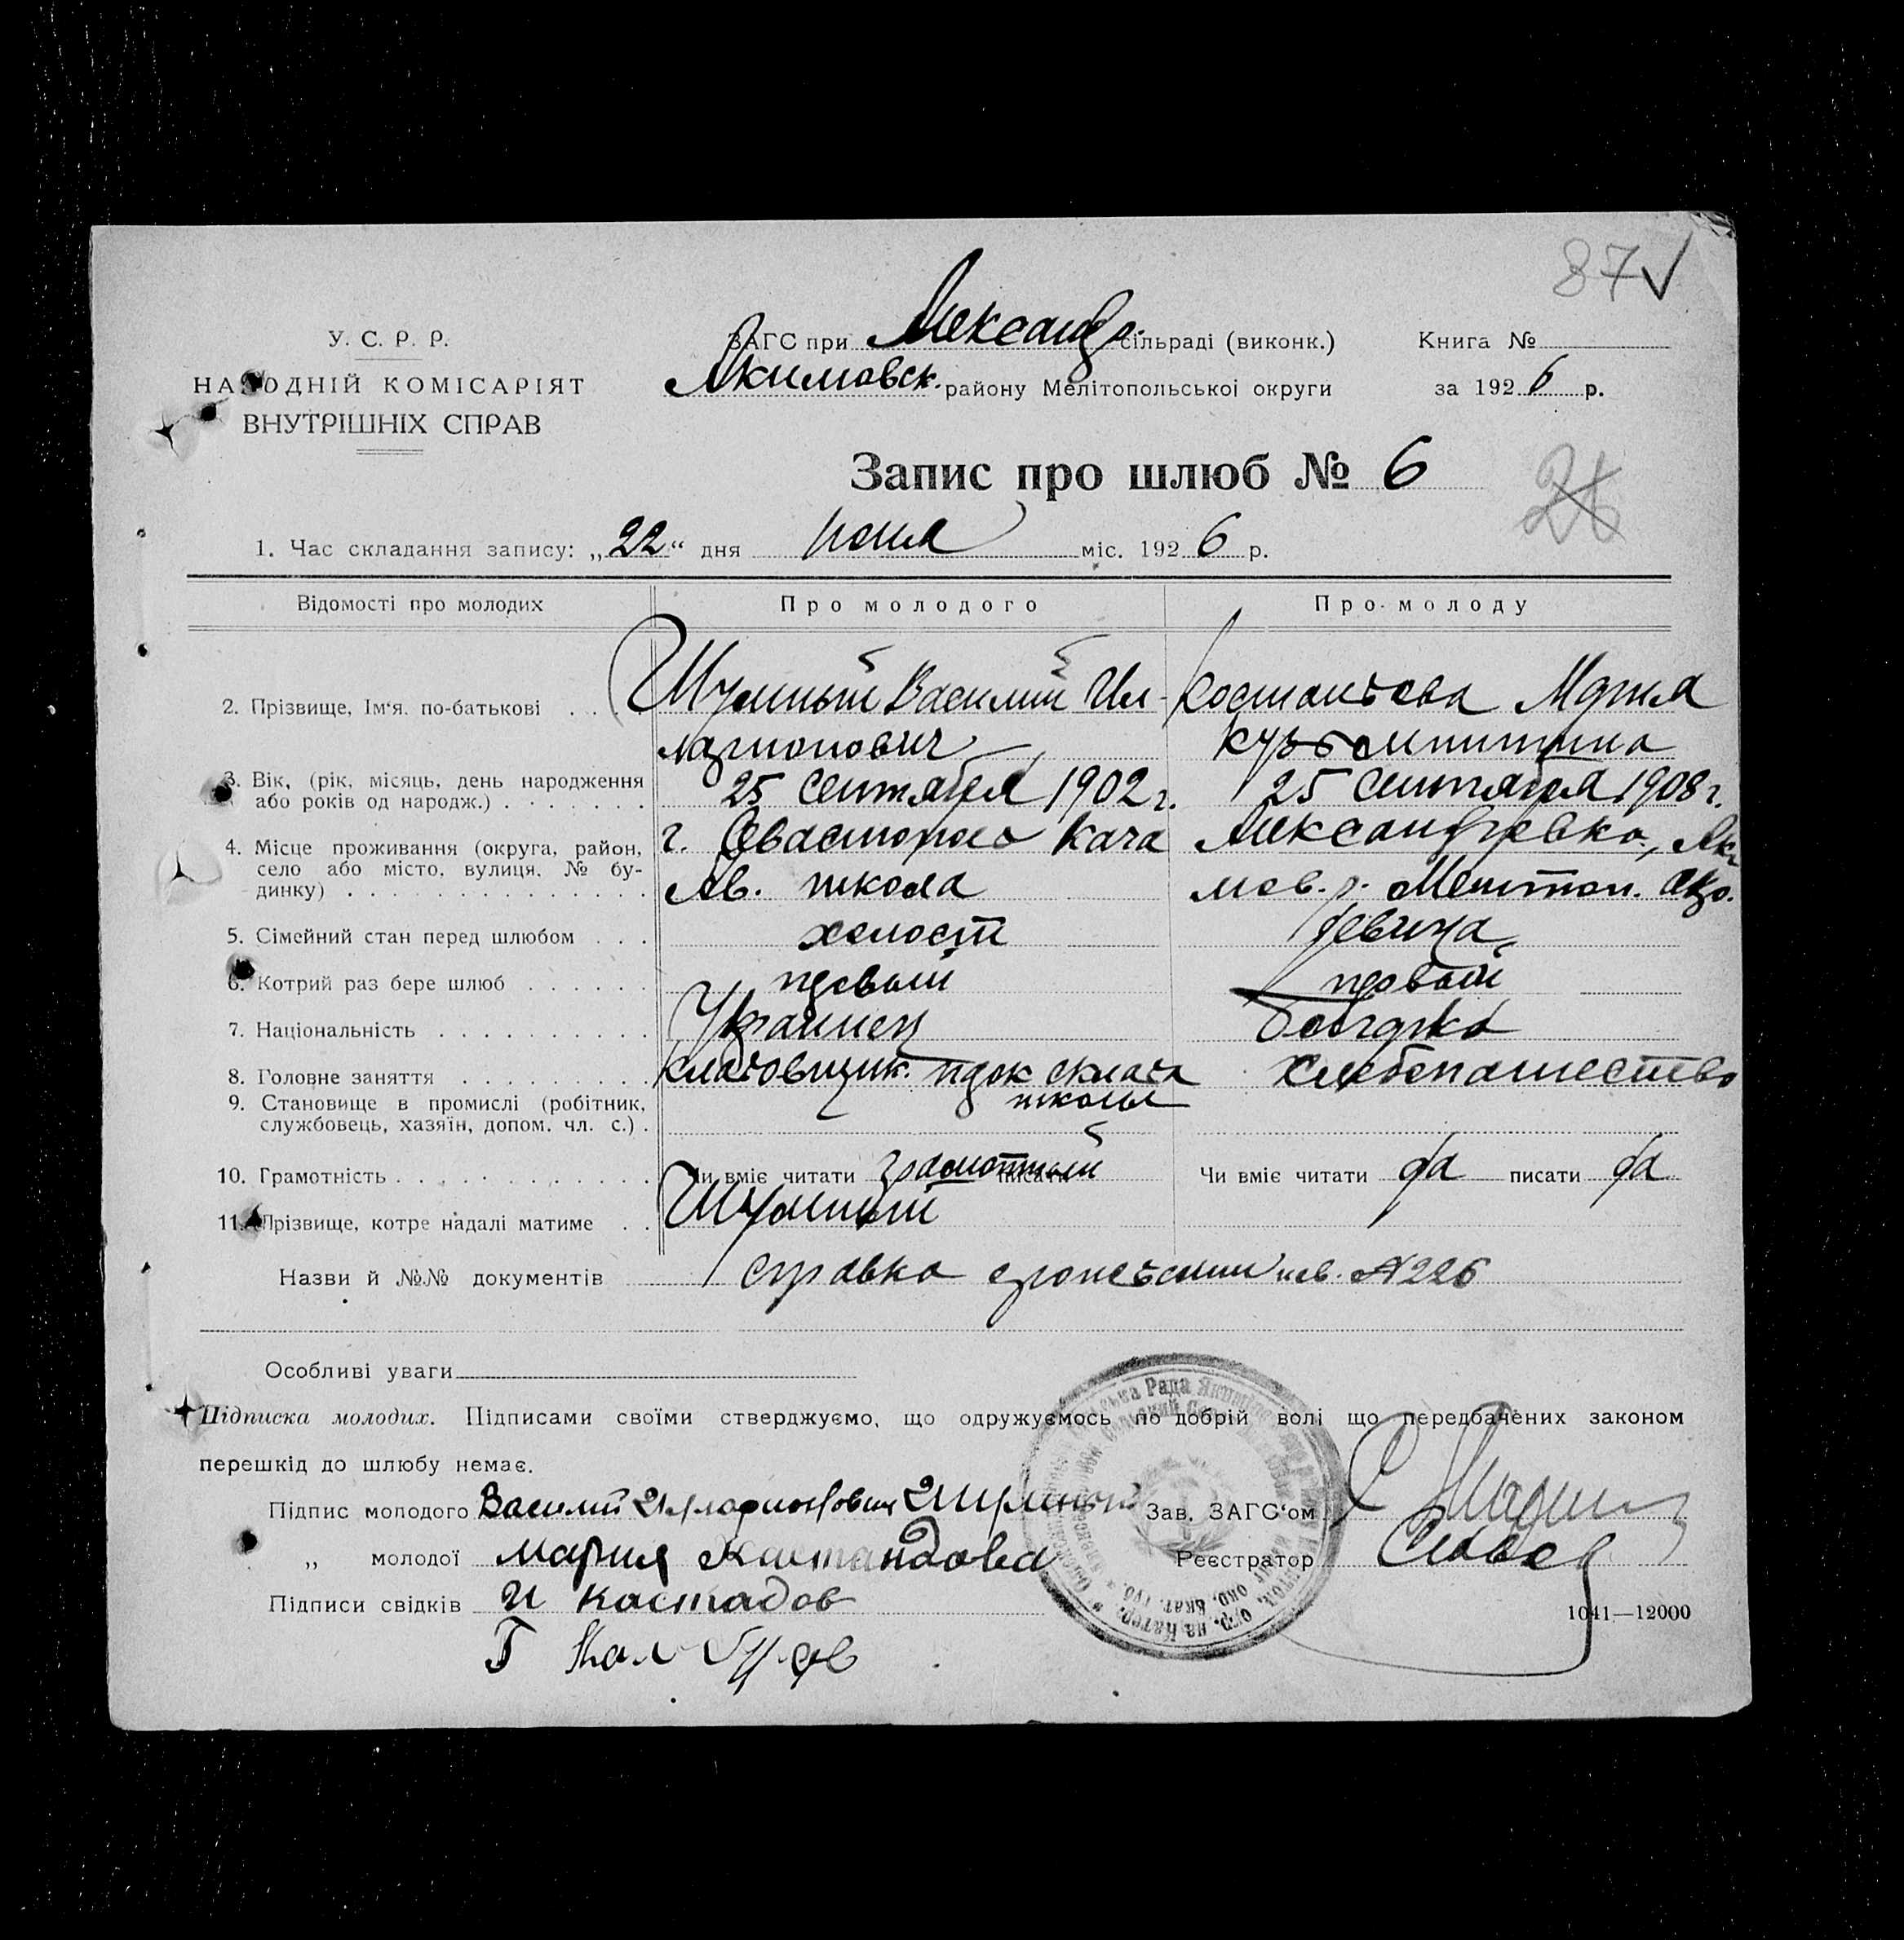 87
У. С. Р. Р.
НАРОДНІЙ КОМІСАРІЯТ
ВНУТРІШНІХ СПРАВ
ЗАГС при Александр. сільраді (виконк.)
Книга №
Акимовск. району Мелітопольської округи
за 1926 р.
Запис про шлюб № 6
26
1. Час складання запису: „22“ дня июня міс. 1926 р.
Відомості про молодих
Про молодого
Про молоду
2. Прізвище, Ім‘я, по-батькові
Шумный Василий Ил-
ларионович
Костандова Мария
3. Вік, (рік, місяць, день народження
або років од народж.)
25 сентября 1902 г.
25 сентября 1908 г.
4. Місце проживання (округа, район,
село або місто, вулиця, № бу-
динку)
г. Севастополь Кача
Ав. школа
Александровка, Аки
мов. р. Мелитоп. окр.
5. Сімейний стан перед шлюбом
холост
девица
6. Котрий раз бере шлюб
первый
первый
7. Національність
Украинец
болгарка
8. Головне заняття
кладовщик прод склада
школы
хлебопашество
9. Становище в промислі (робітник,
службовець, хазяїн, допом. чл. с.)
10. Грамотність
Чи вміє читати грамотный писати
Чи вміє читати да писати да
11. Прізвище, котре надалі матиме
Шумный
Назви й №№ документів
справка №226
Особливі уваги
Підписка молодих. Підписами своїми стверджуємо, що одружуємось по добрій волі що передбачених законом
перешкід до шлюбу немає.
Підпис молодого Василий Илларионович Шумный
Зав. ЗАГС‘ом
„ молодої Мария Кастандова
Реєстратор
Підписи свідків И Кастадов
1041—12000
Г